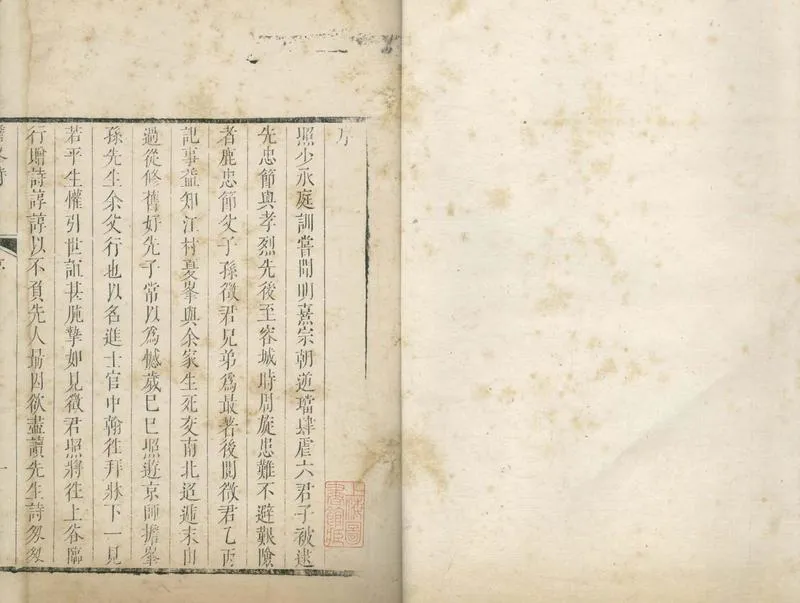 序
照少承庭訓嘗聞明熹宗朝逆璫肆虐六君子被逮
先忠節與孝烈先後至容城時周旋患難不避艱險
者鹿忠節父子孫徵君兄弟爲最著後閱徵君乙丙
記事益知江村夏峯與余家生死交南北迢遞未由
過從修舊好先子常以爲憾歲己巳照遊京師擔峯
孫先生余父行也以名進士官中翰往拜牀下一見
若平生懽引世誼甚肫摯如見徵君照將往上谷臨
行贈詩諄諄以不負先人最因欲盡讀先生詩匆匆
上海圖書館藏